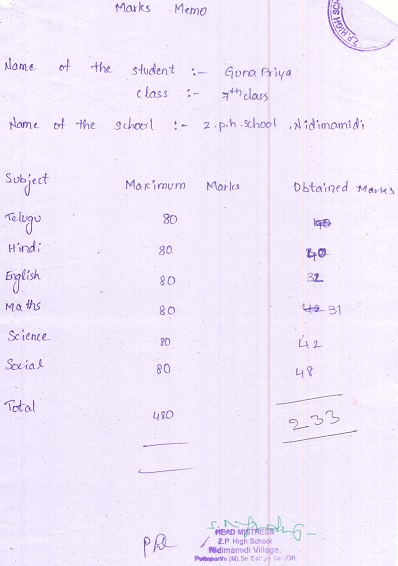 Marks Memo
Z.P HIGH SCH
Name of the student :- Guna Priya
class :- 7th class
Name of the school :- z.p.h.school, Nidimamidi
Subject Maximum Marks Obtained Marks
Telugu 80
Hindi 80 40
English 80 32
Maths 80 42 31
Science 80 42
Social 80 48
Total 480 233
HEAD MISTRESS
Z.P High School
Nidimamidi Village,
Puttaparthi (M), Sri Sathya Sai